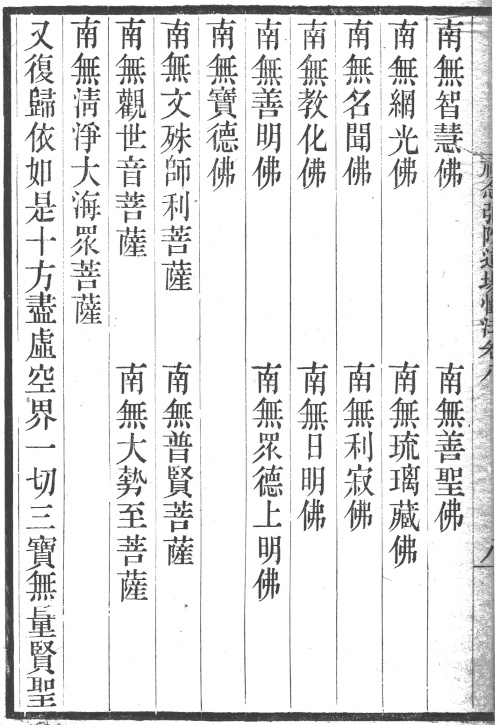 南無智慧佛　南無善聖佛
南無網光佛　南無琉璃藏佛
南無名聞佛　南無利寂佛
南無教化佛　南無日明佛
南無善明佛　南無眾德上明佛
南無寶德佛
南無文殊師利菩薩　南無普賢菩薩
南無觀世音菩薩　南無大勢至菩薩
南無清淨大海眾菩薩
又復歸依如是十方盡虛空界一切三寶無量賢聖